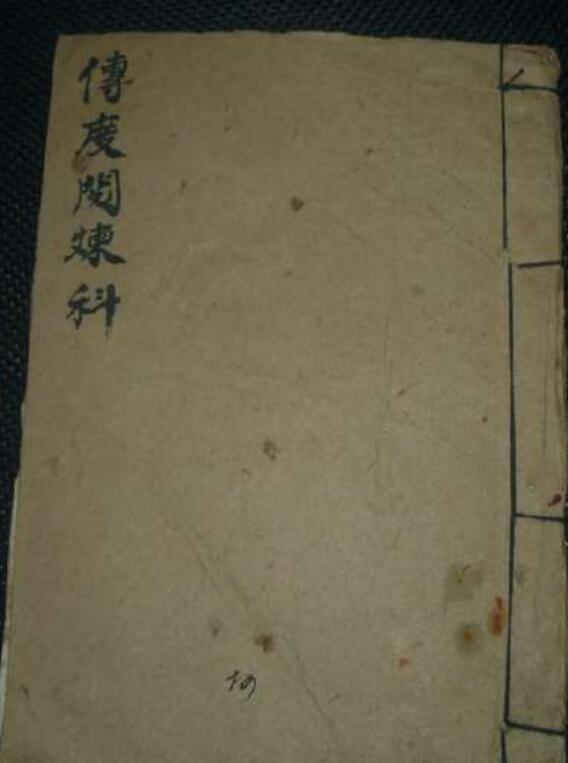 傳度閱煉科